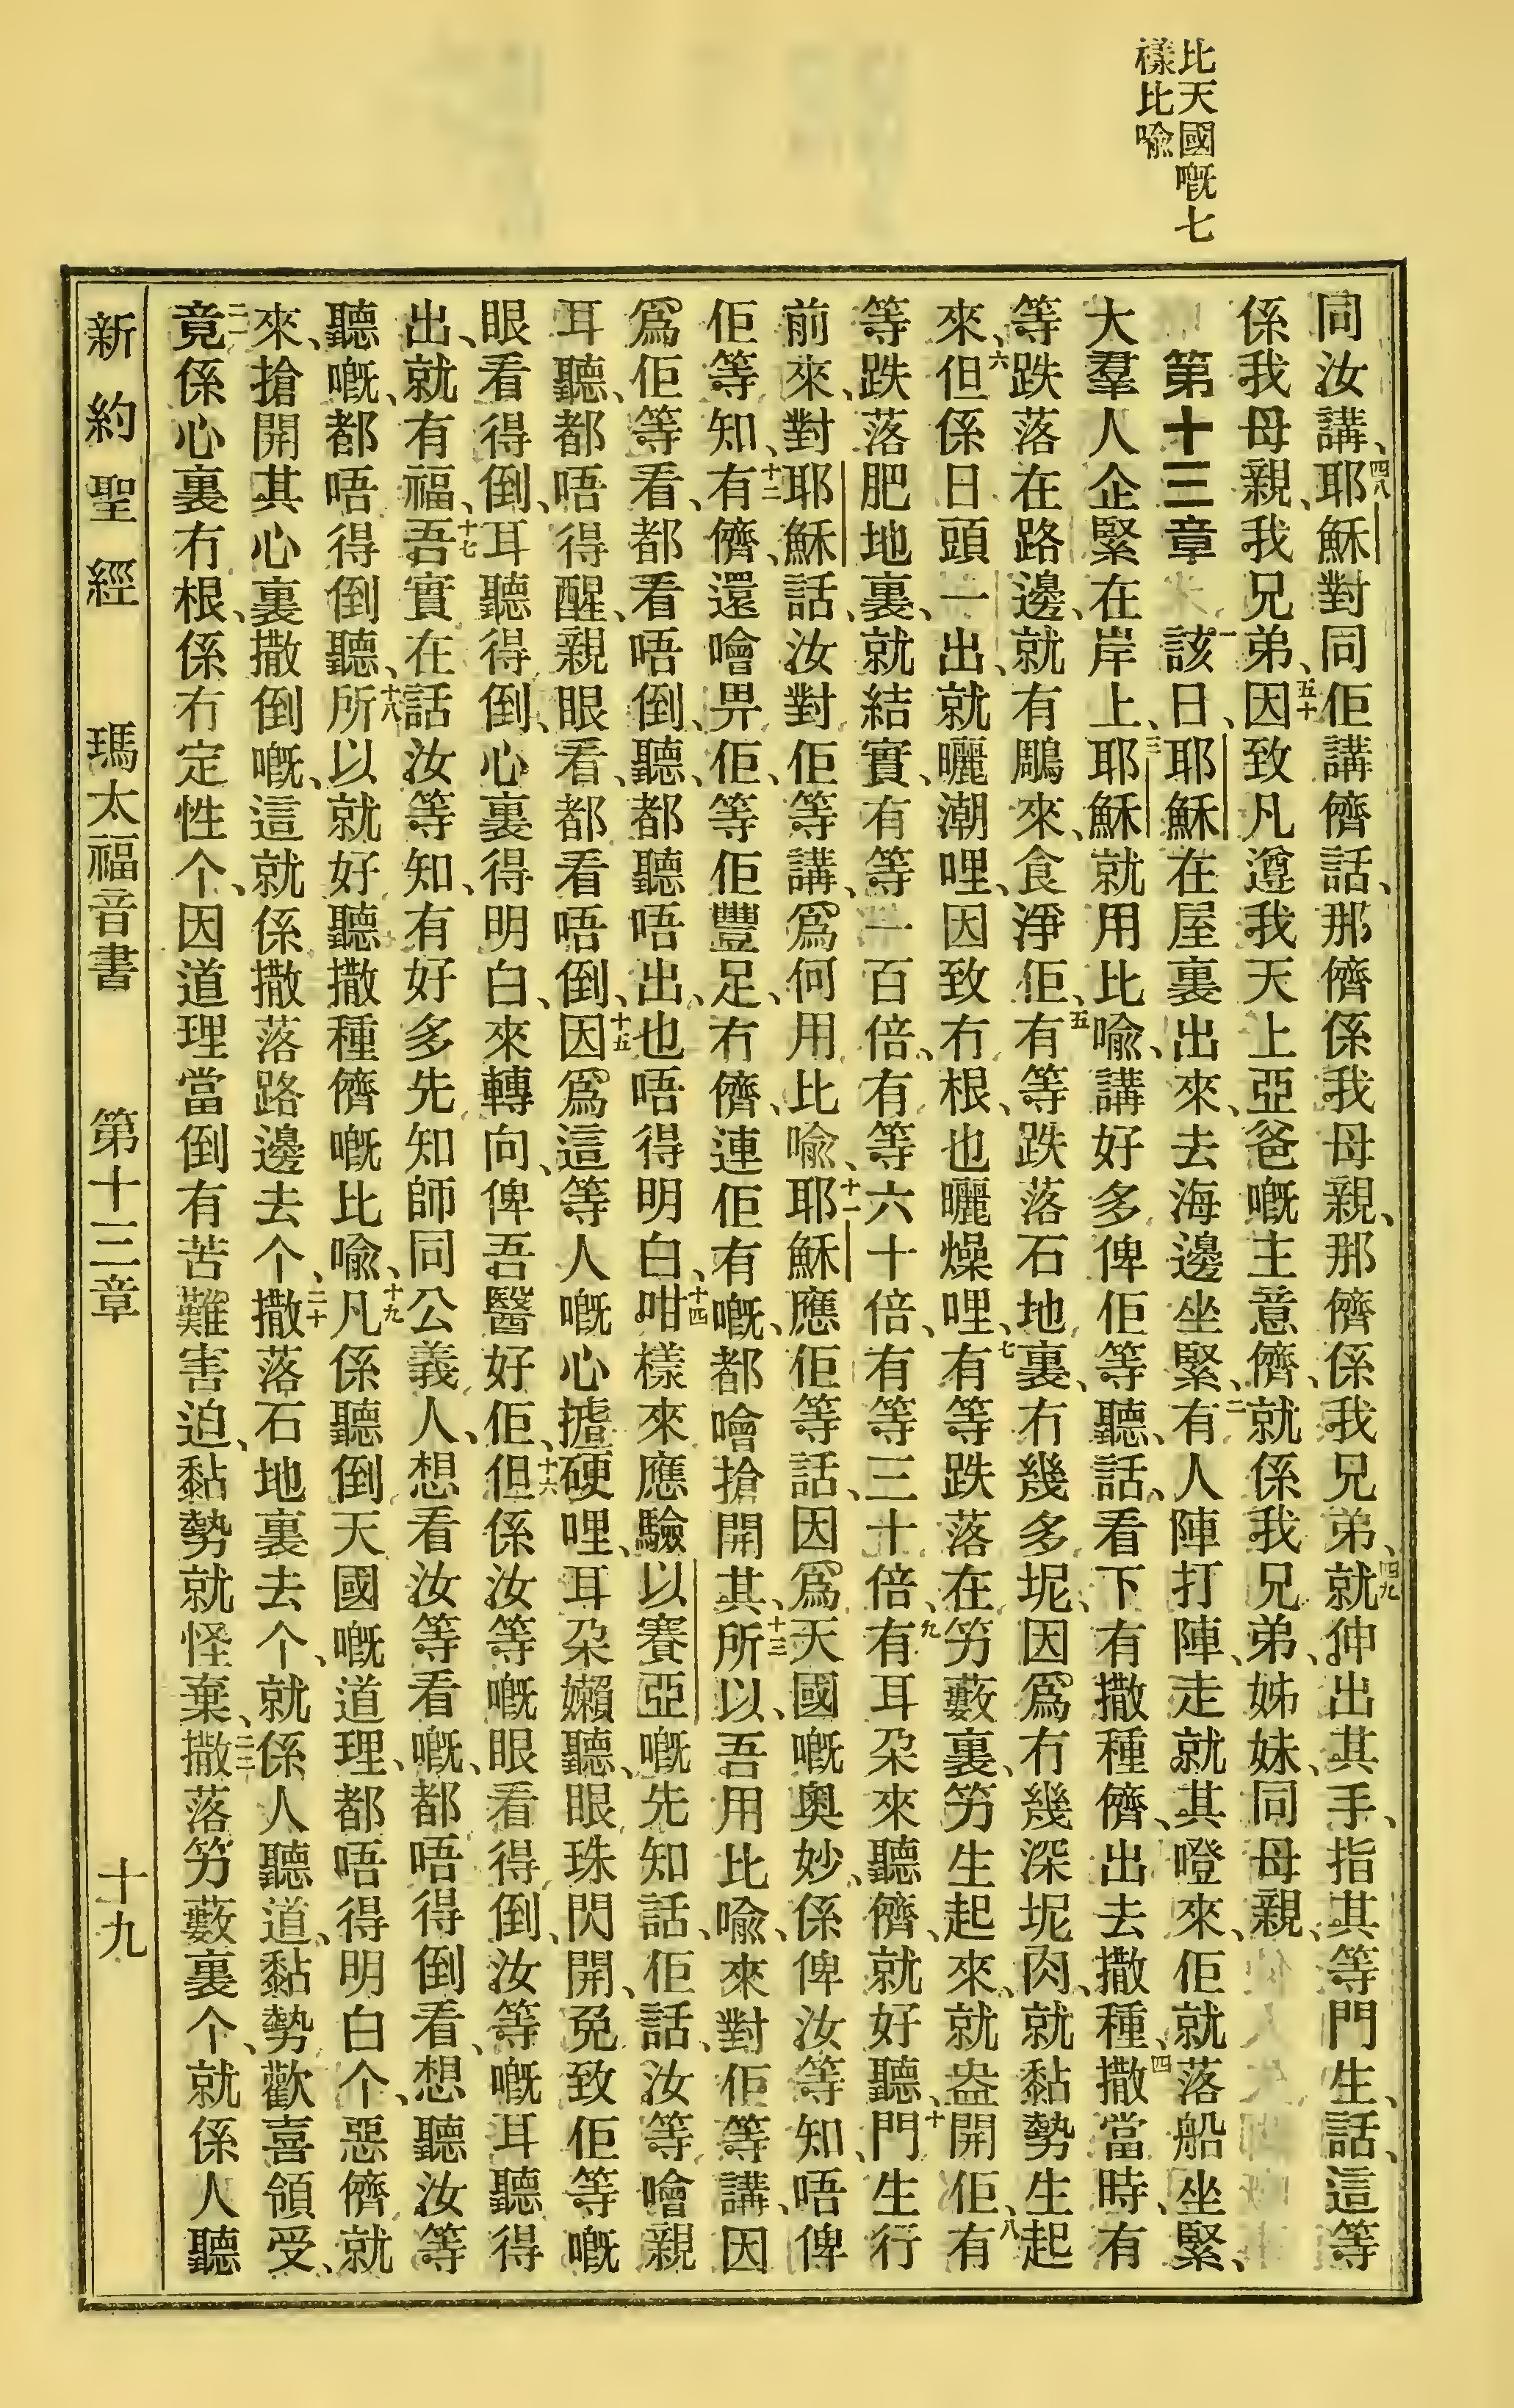 比天國嘅七
樣比喩
同汝講、四八耶穌對同佢講儕話、那儕係我母親、那儕係我兄弟、四九就伸出其手、指其等門生、話、這等
係我母親、我兄弟、五十因致凡遵我天上亞爸嘅主意儕、就係我兄弟、姊妹、同母親、
第十三章 一該日、耶穌在屋裏出來、去海邊坐緊、二有人陣打陣、走就其嶝來、佢就落船坐緊、
大羣人企緊在岸上、三耶穌就用比喩、講好多俾佢等聽、話、看下有撒種儕、出去撒種、四撒當時、有
等跌落在路邊、就有鵰來、食淨佢、五有等跌落石地裏、冇幾多坭、因爲冇幾深坭肉、就黏勢生起
來、六但係日頭一出、就曬潮哩、因致冇根、也曬燥哩、七有等跌落在竻藪裏、竻生起來、就盎開佢、八有
等跌落肥地裏、就結實、有等一百倍、有等六十倍、有等三十倍、九有耳朶來聽儕、就好聽、十門生行
前來、對耶穌話、汝對佢等講、爲何用比喩、十一耶穌應佢等話、因爲天國嘅奥妙、係俾汝等知、唔俾
佢等知、十二有儕、還噲畀佢、等佢豐足、冇儕、連佢有嘅、都噲搶開其、十三所以、吾用比喩、來對佢等講、因
爲佢等看、都看唔倒、聽、都聽唔出、也唔得明白、十四咁樣來應驗以賽亞嘅先知話、佢話、汝等噲親
耳聽、都唔得醒、親眼看、都看唔倒、十五因爲這等人嘅心摣硬哩、耳朶嬾聽、眼珠閃開、免致佢等嘅
眼看得倒、耳聽得倒、心裏得明白、來轉向、俾吾醫好佢、十六但係汝等嘅眼看得倒、汝等嘅耳聽得
出、就有福、十七吾實在話汝等知、有好多先知師同公義人、想看汝等看嘅、都唔得倒看、想聽汝等
聽嘅、都唔得倒聽、十八所以就好聽撒種儕嘅比喩、十九凡係聽倒天國嘅道理、都唔得明白个、惡儕就
來、搶開其心裏撒倒嘅、這就係撒落路邊去个、二十撒落石地裏去个、就係人聽道、黏勢歡喜領受、
二一竟係心裏冇根、係冇定性个、因道理當倒有苦難害迫、黏勢就怪棄、二二撒落竻藪裏个、就係人聽
新約聖經 瑪太福音書 第十三章 十九